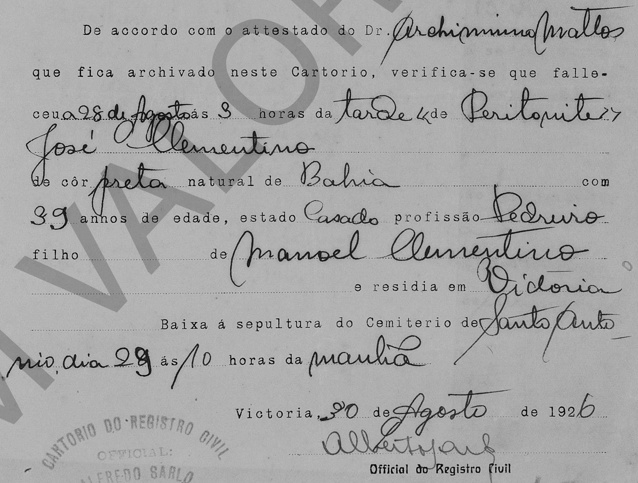 De accordo com o attestado do Dr. Archimimo Mattos
que fica archivado neste Cartorio, verifica-se que falle-
ceu a 28 de Agosto ás 3 horas da tarde de Peritonite
José Clementino
de côr preta natural de Bahia com
39 annos de edade, estado Casado profissão Pedreiro
filho de Manoel Clementino
e residia em Victoria
Baixa á sepultura do Cemiterio de Santo Anto-
nio, dia 29 ás 10 horas da manhã
Victoria, 30 de Agosto de 1926
Official do Registro Civil
CARTORIO DO REGISTRO CIVIL
OFFICIAL:
ALFREDO SARLO